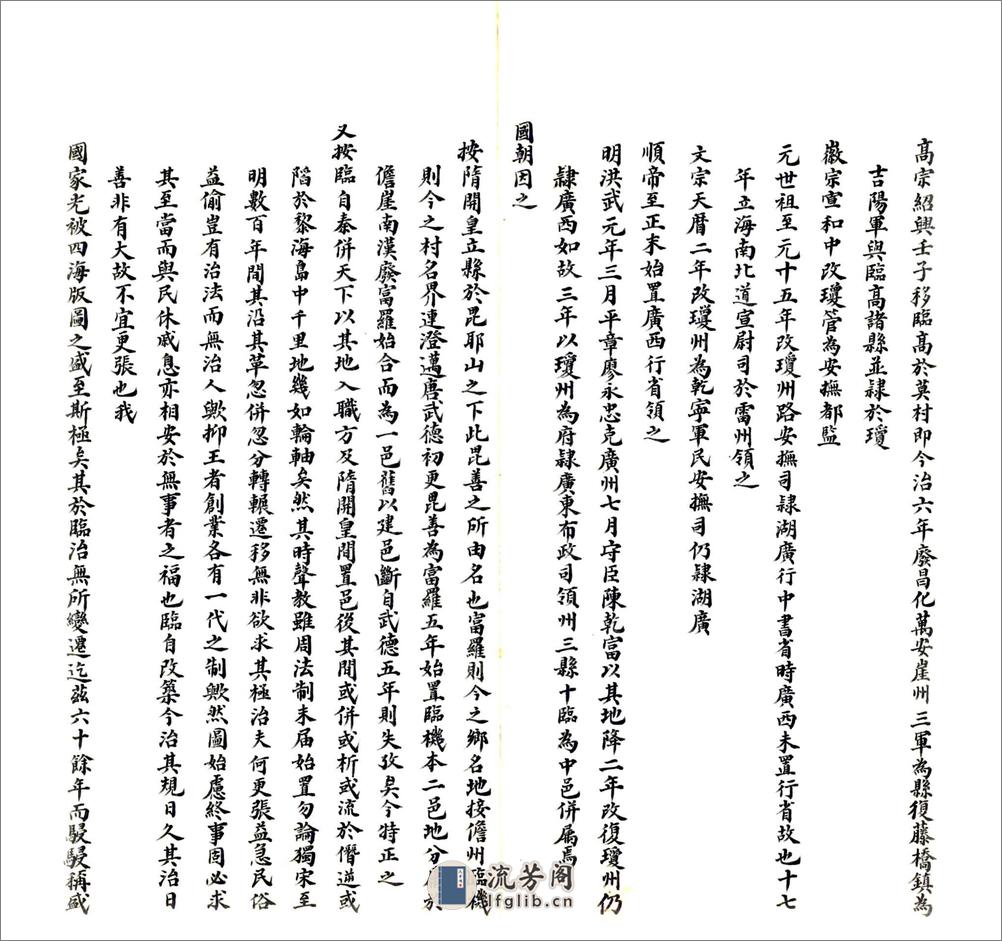 高宗紹興壬子移臨高於莫村即今治六年廢昌化萬安崖州三軍為縣復藤橋鎮為
吉陽軍與臨高諸縣並隸於瓊
徽宗宣和中改瓊管為安撫都監
元世祖至元十五年改瓊州路安撫司隸湖廣行中書省時廣西未置行省故也十七
年立海南北道宣尉司於雷州領之
文宗天曆二年改瓊州為乾寧軍民安撫司仍隸湖廣
順帝至正末始置廣西行省領之
明洪武元年三月平章廖永忠克廣州七月守臣陳乾富以其地降二年改復瓊州仍
隸廣西如故三年以瓊州為府隸廣東布政司領州三縣十臨為中邑併屬焉
國朝因之
按隋開皇立縣於毘耶山之下此毘善之所由名也富羅則今之鄉名地接儋州臨機
則今之村名界連澄邁唐武德初更毘善為富羅五年始置臨機本二邑地分於
儋崖南漢廢富羅始合而為一邑舊以建邑斷自武德五年則失攷矣今特正之
又按臨自秦併天下以其地入職方及隋開皇間置邑後其間或併或析或流於僭逆或
陷於黎海島中千里地幾如輪軸矣然其時聲教雖周法制未届始置勿論獨宋至
明數百年間其沿其革忽併忽分轉輾遷移無非欲求其極治夫何更張益急民俗
益偷豈有治法而無治人歟抑王者創業各有一代之制歟然圖始慮終事固必求
其至當而與民休戚息亦相安於無事者之福也臨自改築今治其規日久其治日
善非有大故不宜更張也我
國家光被四海版圖之盛至斯極矣其於臨治無所變遷迄茲六十餘年而駸駸稱盛
流芳阁
lfglib.cn